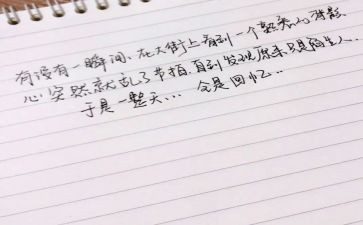 有没有一瞬间，在大街上看到一个熟悉的背影
心突然就乱了节拍，直到发现原来只是陌生人...
于是一整天... 全是回忆...